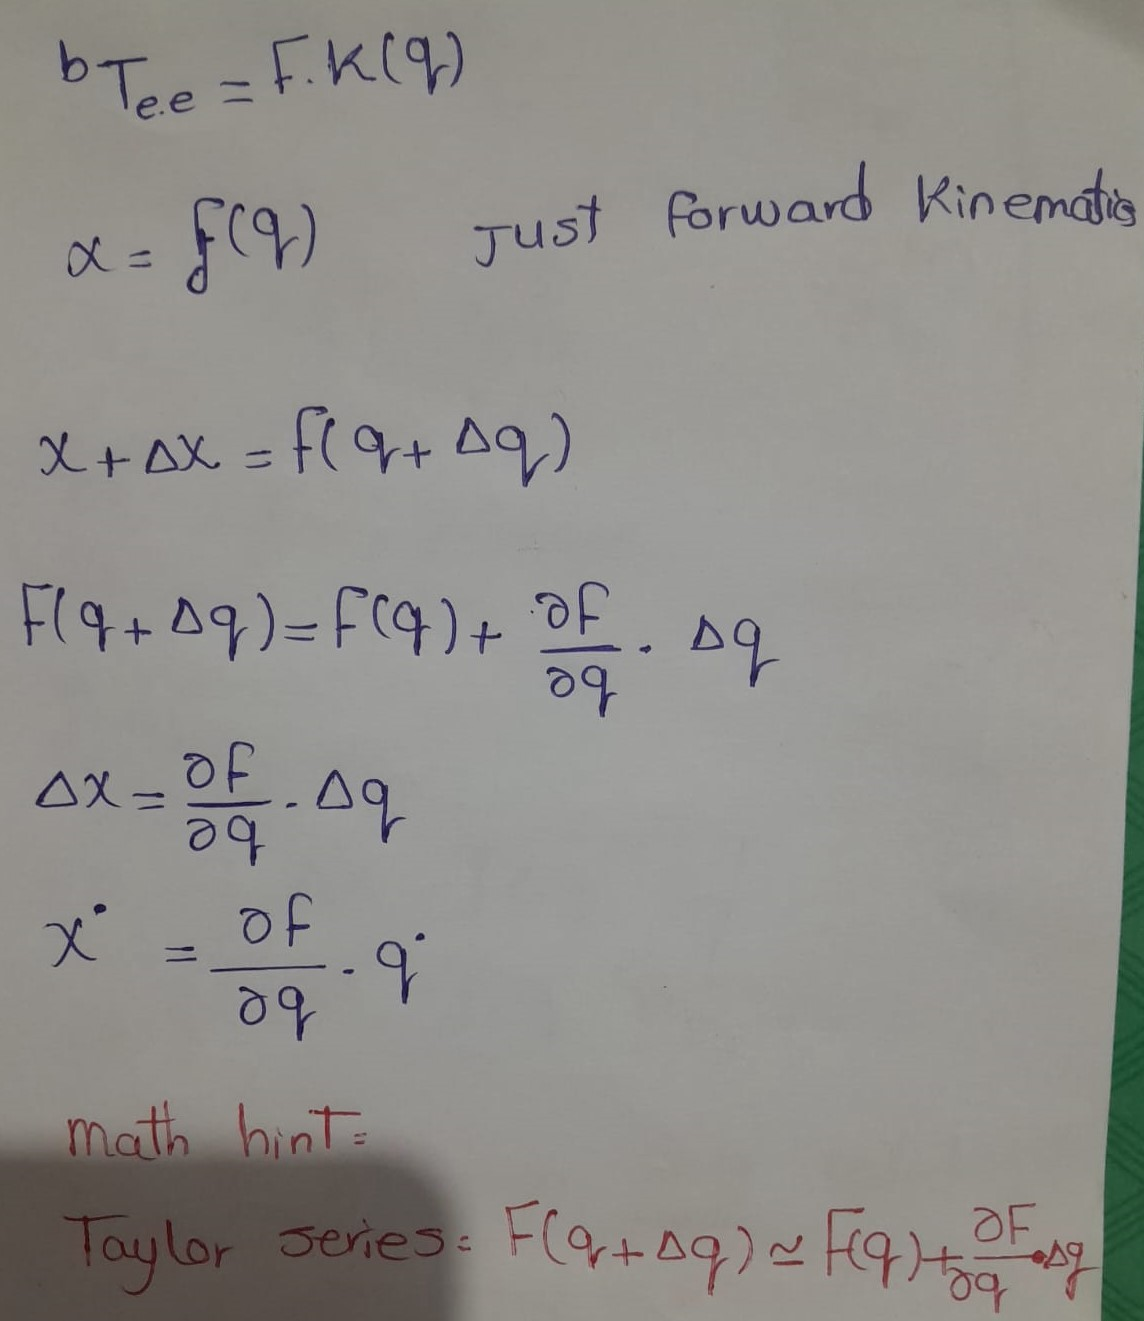 ᵇTe.e = F.K(q)
x = f(q) Just forward Kinematics
x + Δx = f(q + Δq)
F(q + Δq) = f(q) + ∂f/∂q . Δq
Δx = ∂f/∂q . Δq
x˙ = ∂f/∂q . q˙
math hint:
Taylor series: F(q + Δq) ≃ F(q) + ∂F/∂q . Δq